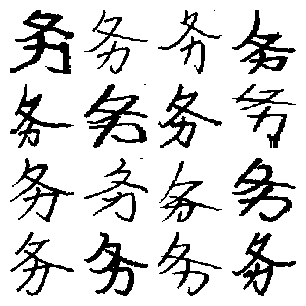 务务务务
务务务务
务务务务
务务务务